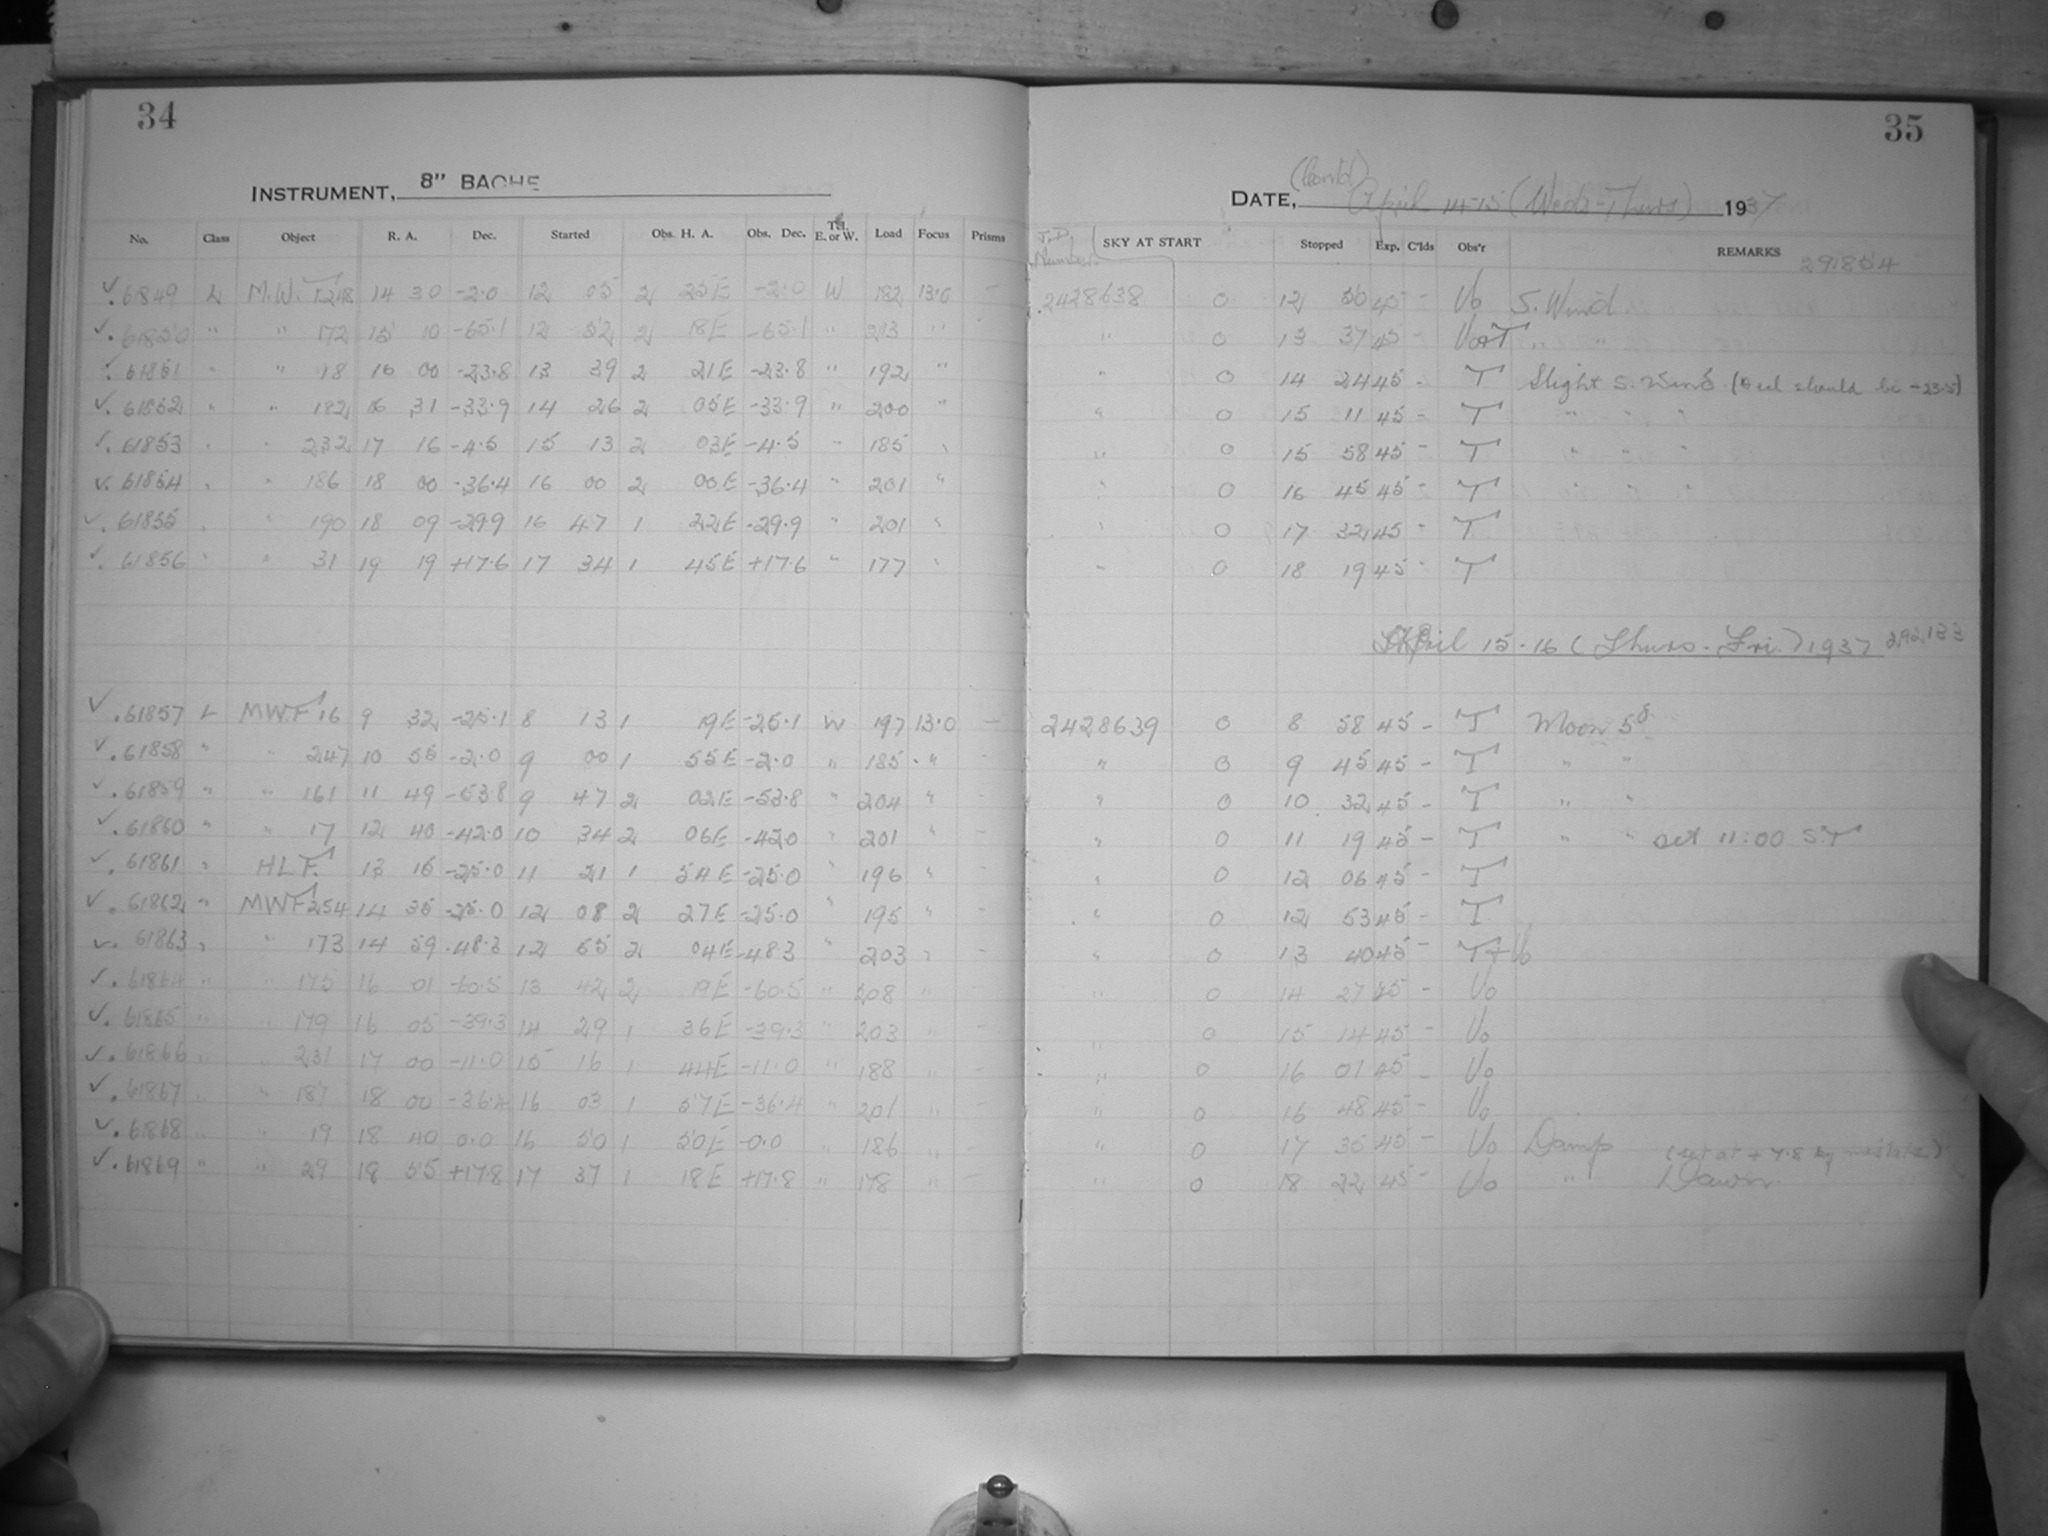 34
INSTRUMENT, 8" BACHE
No. Class Object R. A. Dec. Started Obs. H. A. Obs. Dec. Tel. E. or W. Load Focus Prisms
✓. 61849 L M.W.F. 248 14 30 -2.0 12 05 2 25E -2.0 W 182 13.0 -
✓. 61850 " " 172 15 10 -65.1 12 52 2 18E -65.1 " 213 "
✓. 61851 " " 18 16 00 -23.8 13 39 2 21E -23.8 " 192 "
✓. 61852 " " 182 16 31 -33.9 14 26 2 05E -33.9 " 200 "
✓. 61853 " " 232 17 16 -4.5 15 13 2 03E -4.5 " 185 "
✓. 61854 " " 186 18 00 -36.4 16 00 2 00E -36.4 " 201 "
✓. 61855 " " 190 18 09 -29.9 16 47 1 22E -29.9 " 201 "
✓. 61856 " " 31 19 19 +17.6 17 34 1 45E +17.6 " 177 "
✓. 61857 L MWF 16 9 32 -25.1 8 13 1 19E -25.1 W 197 13.0 -
✓. 61858 " " 247 10 55 -2.0 9 00 1 55E -2.0 " 185 " -
✓. 61859 " " 161 11 49 -53.8 9 47 2 02E -53.8 " 204 " -
✓. 61860 " " 17 12 40 -42.0 10 34 2 06E -42.0 " 201 " -
✓. 61861 " HLF. 13 15 -25.0 11 21 1 54E -25.0 " 196 " -
✓. 61862 " MWF 254 14 35 -25.0 12 08 2 27E -25.0 " 195 " -
✓. 61863 " " 173 14 59 -48.3 12 55 2 04E -48.3 " 203 " -
✓. 61864 " " 175 16 01 -60.5 13 42 2 19E -60.5 " 208 " -
✓. 61865 " " 179 16 05 -39.3 14 29 1 36E -39.3 " 203 " -
✓. 61866 " " 231 17 00 -11.0 15 16 1 44E -11.0 " 188 " -
✓. 61867 " " 187 18 00 -36.4 16 03 1 57E -36.4 " 201 " -
✓. 61868 " " 19 18 40 0.0 16 50 1 50E -0.0 " 186 " -
✓. 61869 " " 29 18 55 +17.8 17 37 1 18E +17.8 " 178 " -
35
DATE, (Contd) April 14-15 (Weds-Thurs) 1937
J.D. Number SKY AT START Stopped Exp. C'lds Obs'r REMARKS 291854
2428638 0 12 50 45 - Vo S. Wind
" 0 13 37 45 - Vo+T " "
" 0 14 24 45 - T Slight S. Wind (Decl should be -23.5)
" 0 15 11 45 - T " " "
" 0 15 58 45 - T " " "
" 0 16 45 45 - T " " "
" 0 17 32 45 - T
" 0 18 19 45 - T
April 15-16 (Thurs.-Fri.) 1937 292133
2428639 0 8 58 45 - T Moon 5d
" 0 9 45 45 - T " "
" 0 10 32 45 - T " "
" 0 11 19 45 - T " " set 11:00 ST
" 0 12 06 45 - T
" 0 12 53 45 - T
" 0 13 40 45 - T+Vo
" 0 14 27 45 - Vo
" 0 15 14 45 - Vo
" 0 16 01 45 - Vo
" 0 16 48 45 - Vo
" 0 17 35 45 - Vo Damp (set at + 7.8 by mistake)
" 0 18 22 45 - Vo " Dawn